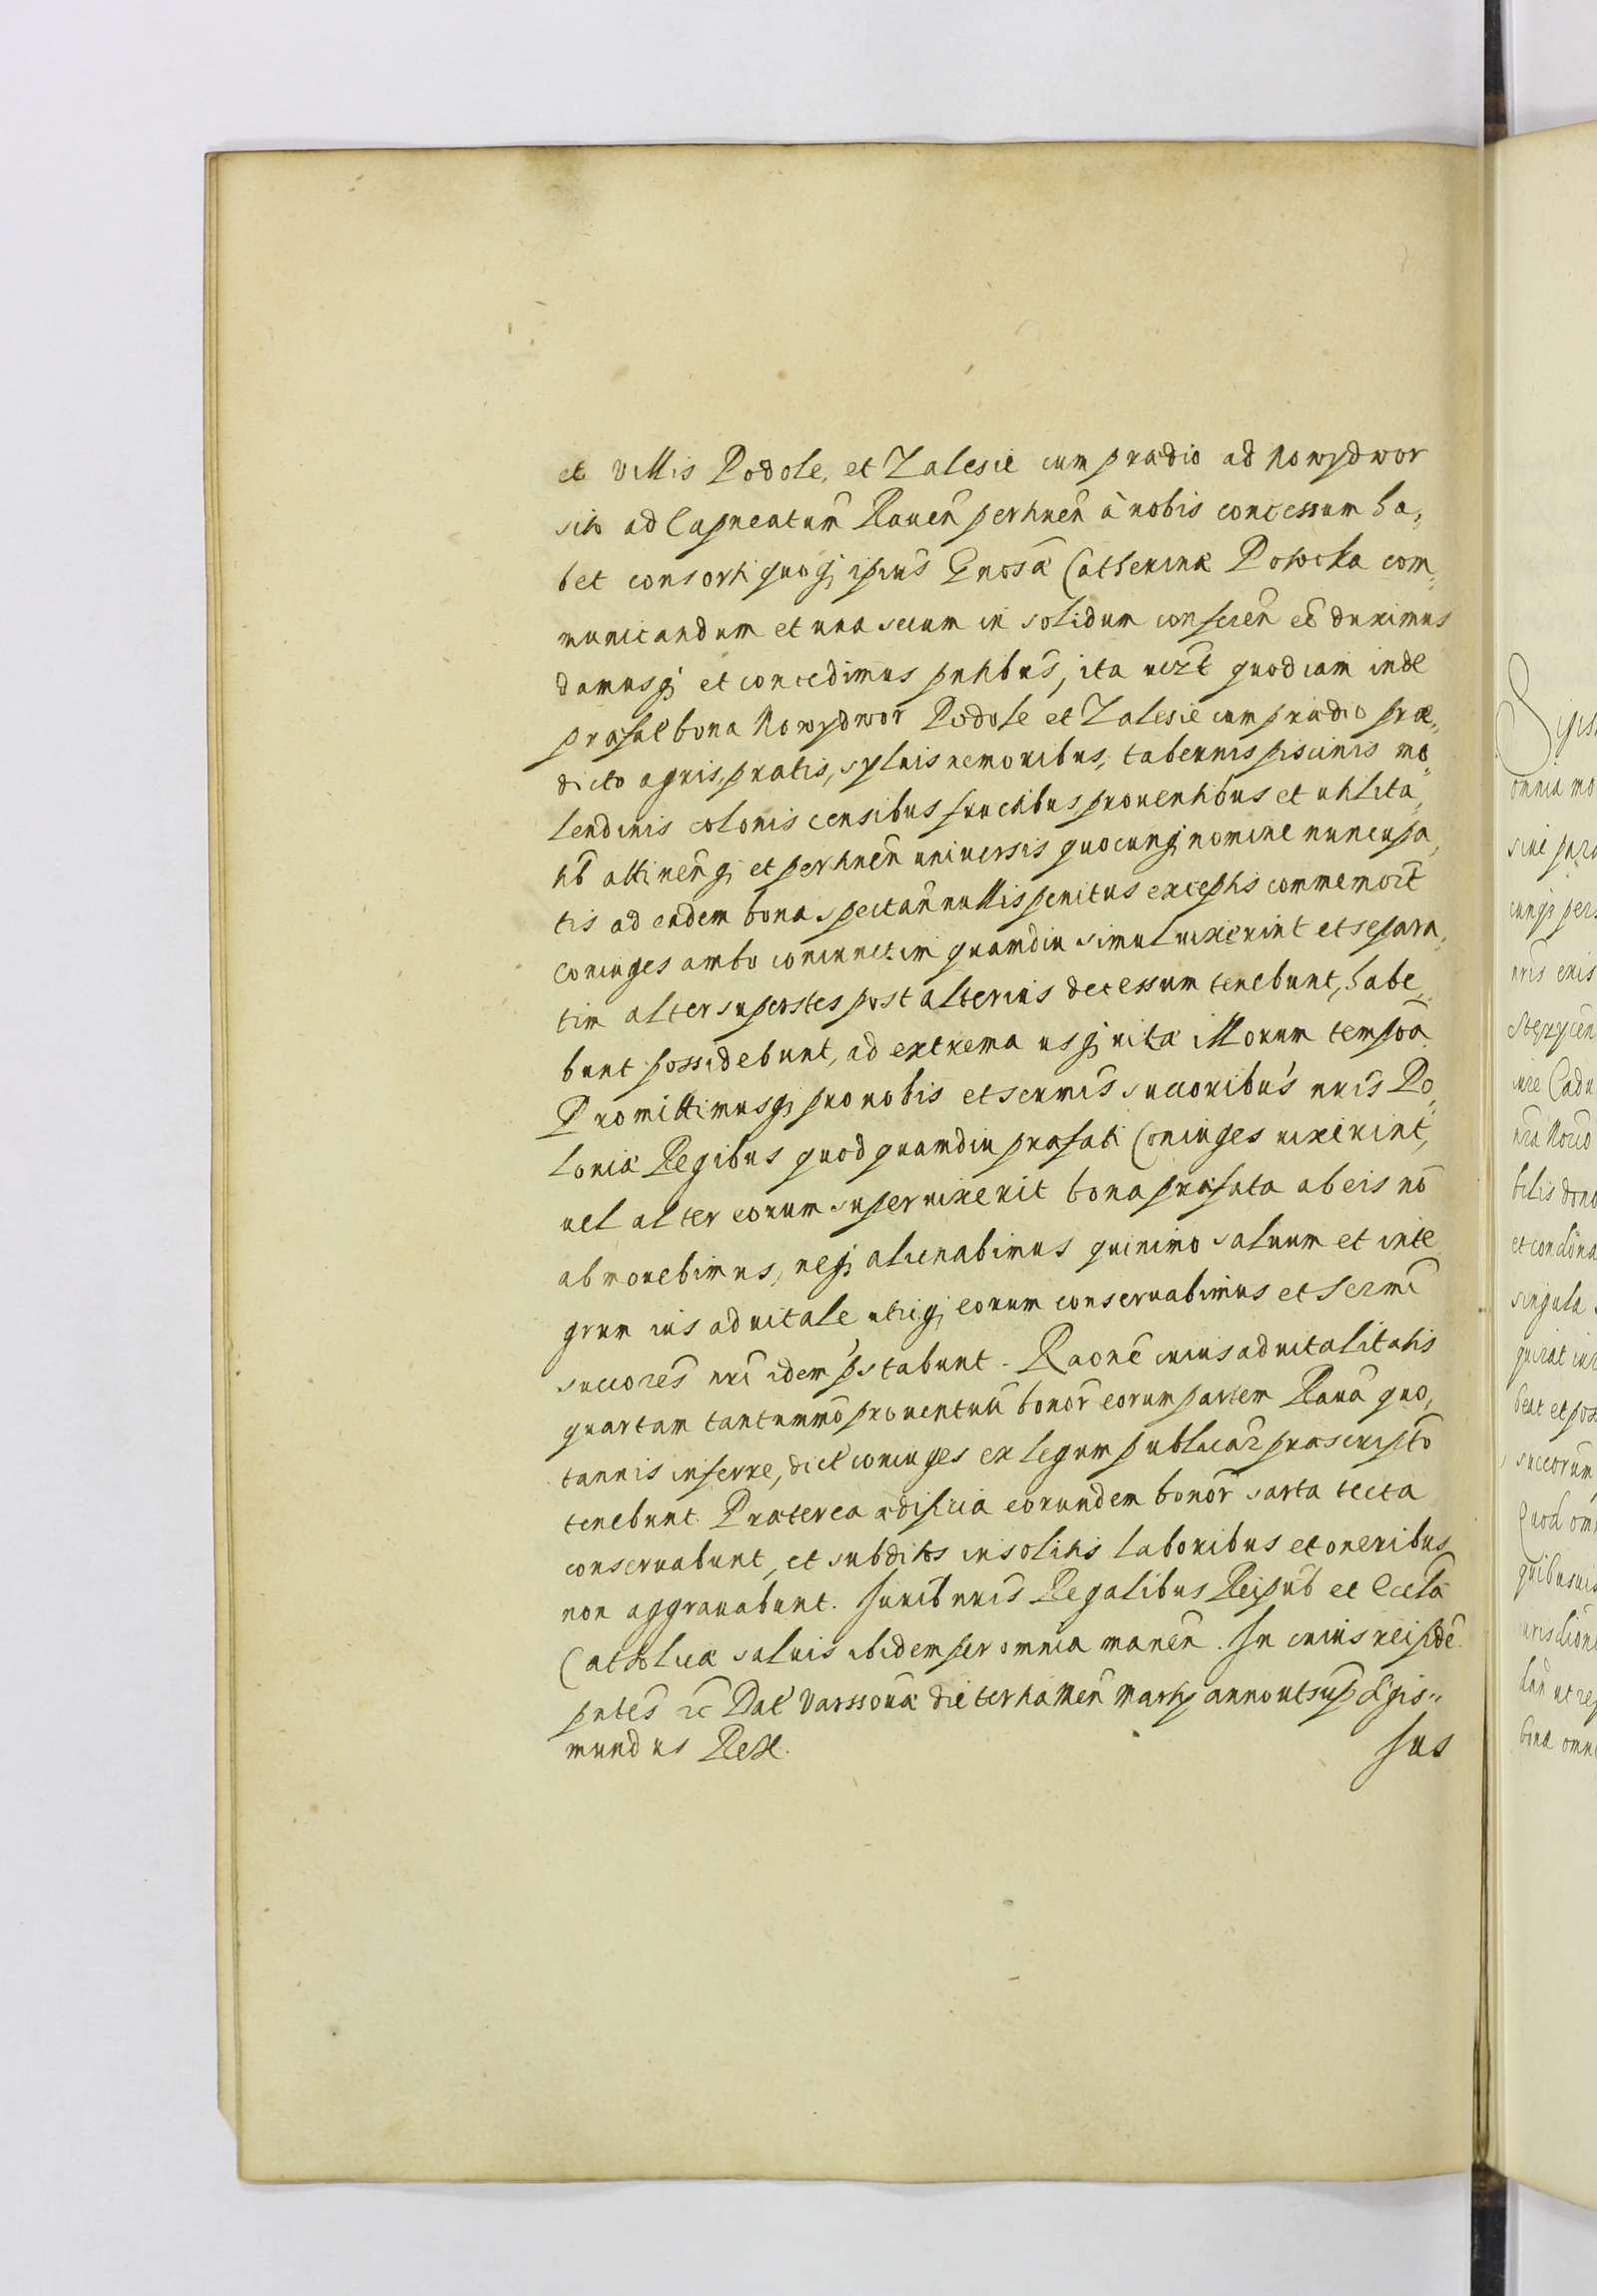 et villis Podole, et Zalesie cum prædio ad Nowydwor
sito ad Capneatum Raueñ pertineñ à nobis concessum ha,
bet consorti quoq; ipius Gnosæ Catherinæ Potocka com,,
municandum et una secum in solidum conferen eẽ duximus
damusq; et concedimus pntibus, ita uizt quod iam inde
præfat bona Nowydwor Podole et Zalesie cum prædio præ,,
dicto agris, pratis, syluis nemoribus, tabernis piscinis mo,,
lendinis colonis censibus fructibus prouentibus et utilita,,
tib attineñq; et pertineñ uniuersis quocunq; nomine nuncupa,
tis ad eadem bona spectañ nullis penitus exceptis commemort
coniuges ambo coniunctim quamdiu simul uixerint et separa,
tim alter superstes post alterius decessum tenebunt, habe,,
bunt possidebunt, ad extrema usq; uitæ illorum tempoa
Promittimusq; pro nobis et sermis succoribus nris Po,,
loniæ Regibus quod quamdiu præfati Coniuges uixerint,
uel alter eorum superuixerit bona præfata ab eis nõ
abmouebimus, neq; alienabimus quinimo saluum et inte
grum ius aduitale utriq; eorum conseruabimus et Sermi
succores nri idem pstabunt. Raone cuius aduitalitatis
quartam tantummo prouentuũ bonor eorum partem Rauã quo,
tannis inferre, dict coniuges ex legum publicar præscripto
tenebunt. Præterea ædificia eorundem bonor sarta tecta
conseruabunt, et subditos insolitis laboribus et oneribus
non aggrauabunt. Iurib nris Regalibus Reipub et Eccla
Catholicæ saluis ibidem per omnia maneñ. In cuius rei fidẽ
pntes &c Dat Varssouiæ die tertia Meñ Martij anno ut sup Sigis,,
mundus Rex.
Sus